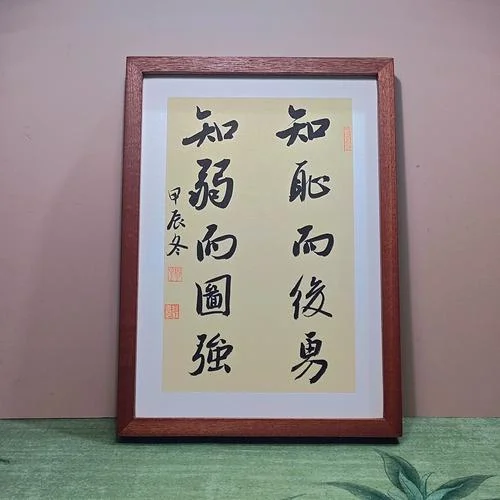 知恥而後勇
知弱而圖強
甲辰冬